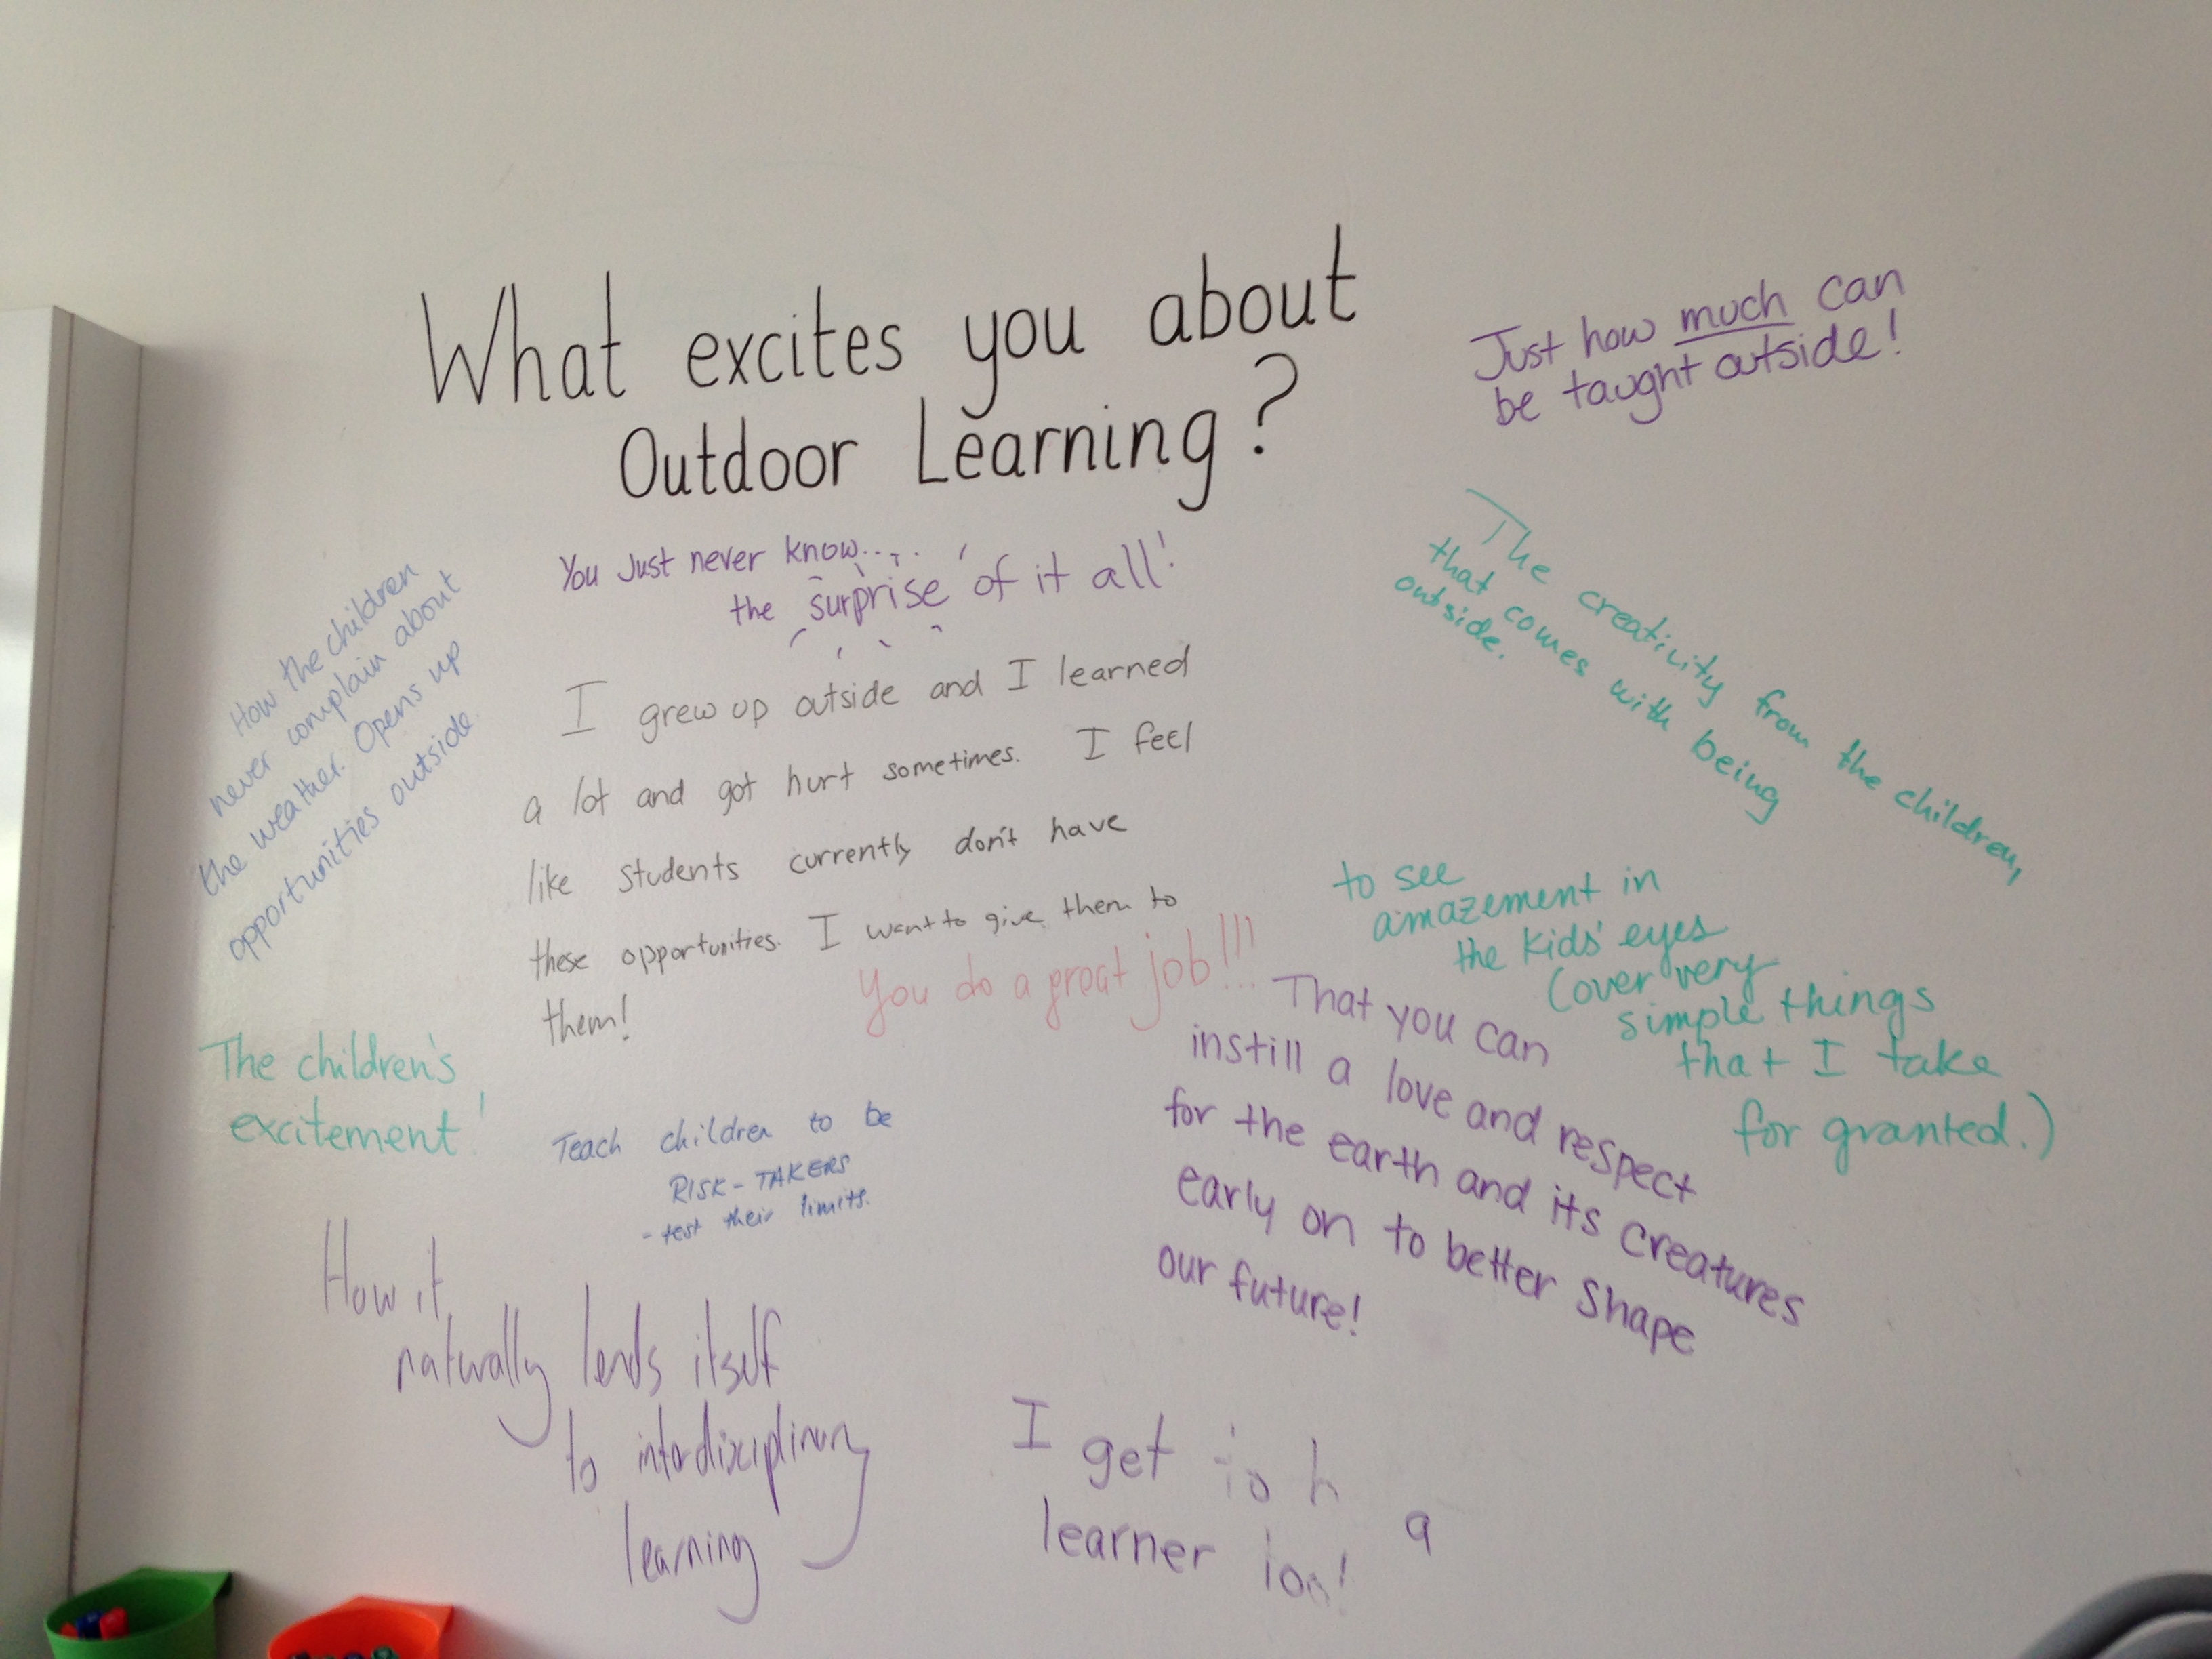 What excites you about
Outdoor Learning?
Just how much can
be taught outside!
You Just never know.....
the surprise 'of it all'!
The creativity from the children,
that comes with being
outside.
How the children
never complain about
the weather. Opens up
opportunities outside.
I grew up outside and I learned
a lot and got hurt sometimes. I feel
like students currently don't have
these opportunities. I want to give them to
them!
You do a great job!!!
to see
amazement in
the kids' eyes
(over very
simple things
that I take
for granted.)
The children's
excitement!
Teach children to be
RISK-TAKERS
- test their limits.
That you can
instill a love and respect
for the earth and its creatures
early on to better shape
our future!
How it
naturally lends itself
to interdisciplinary
learning
I get to
a
learner